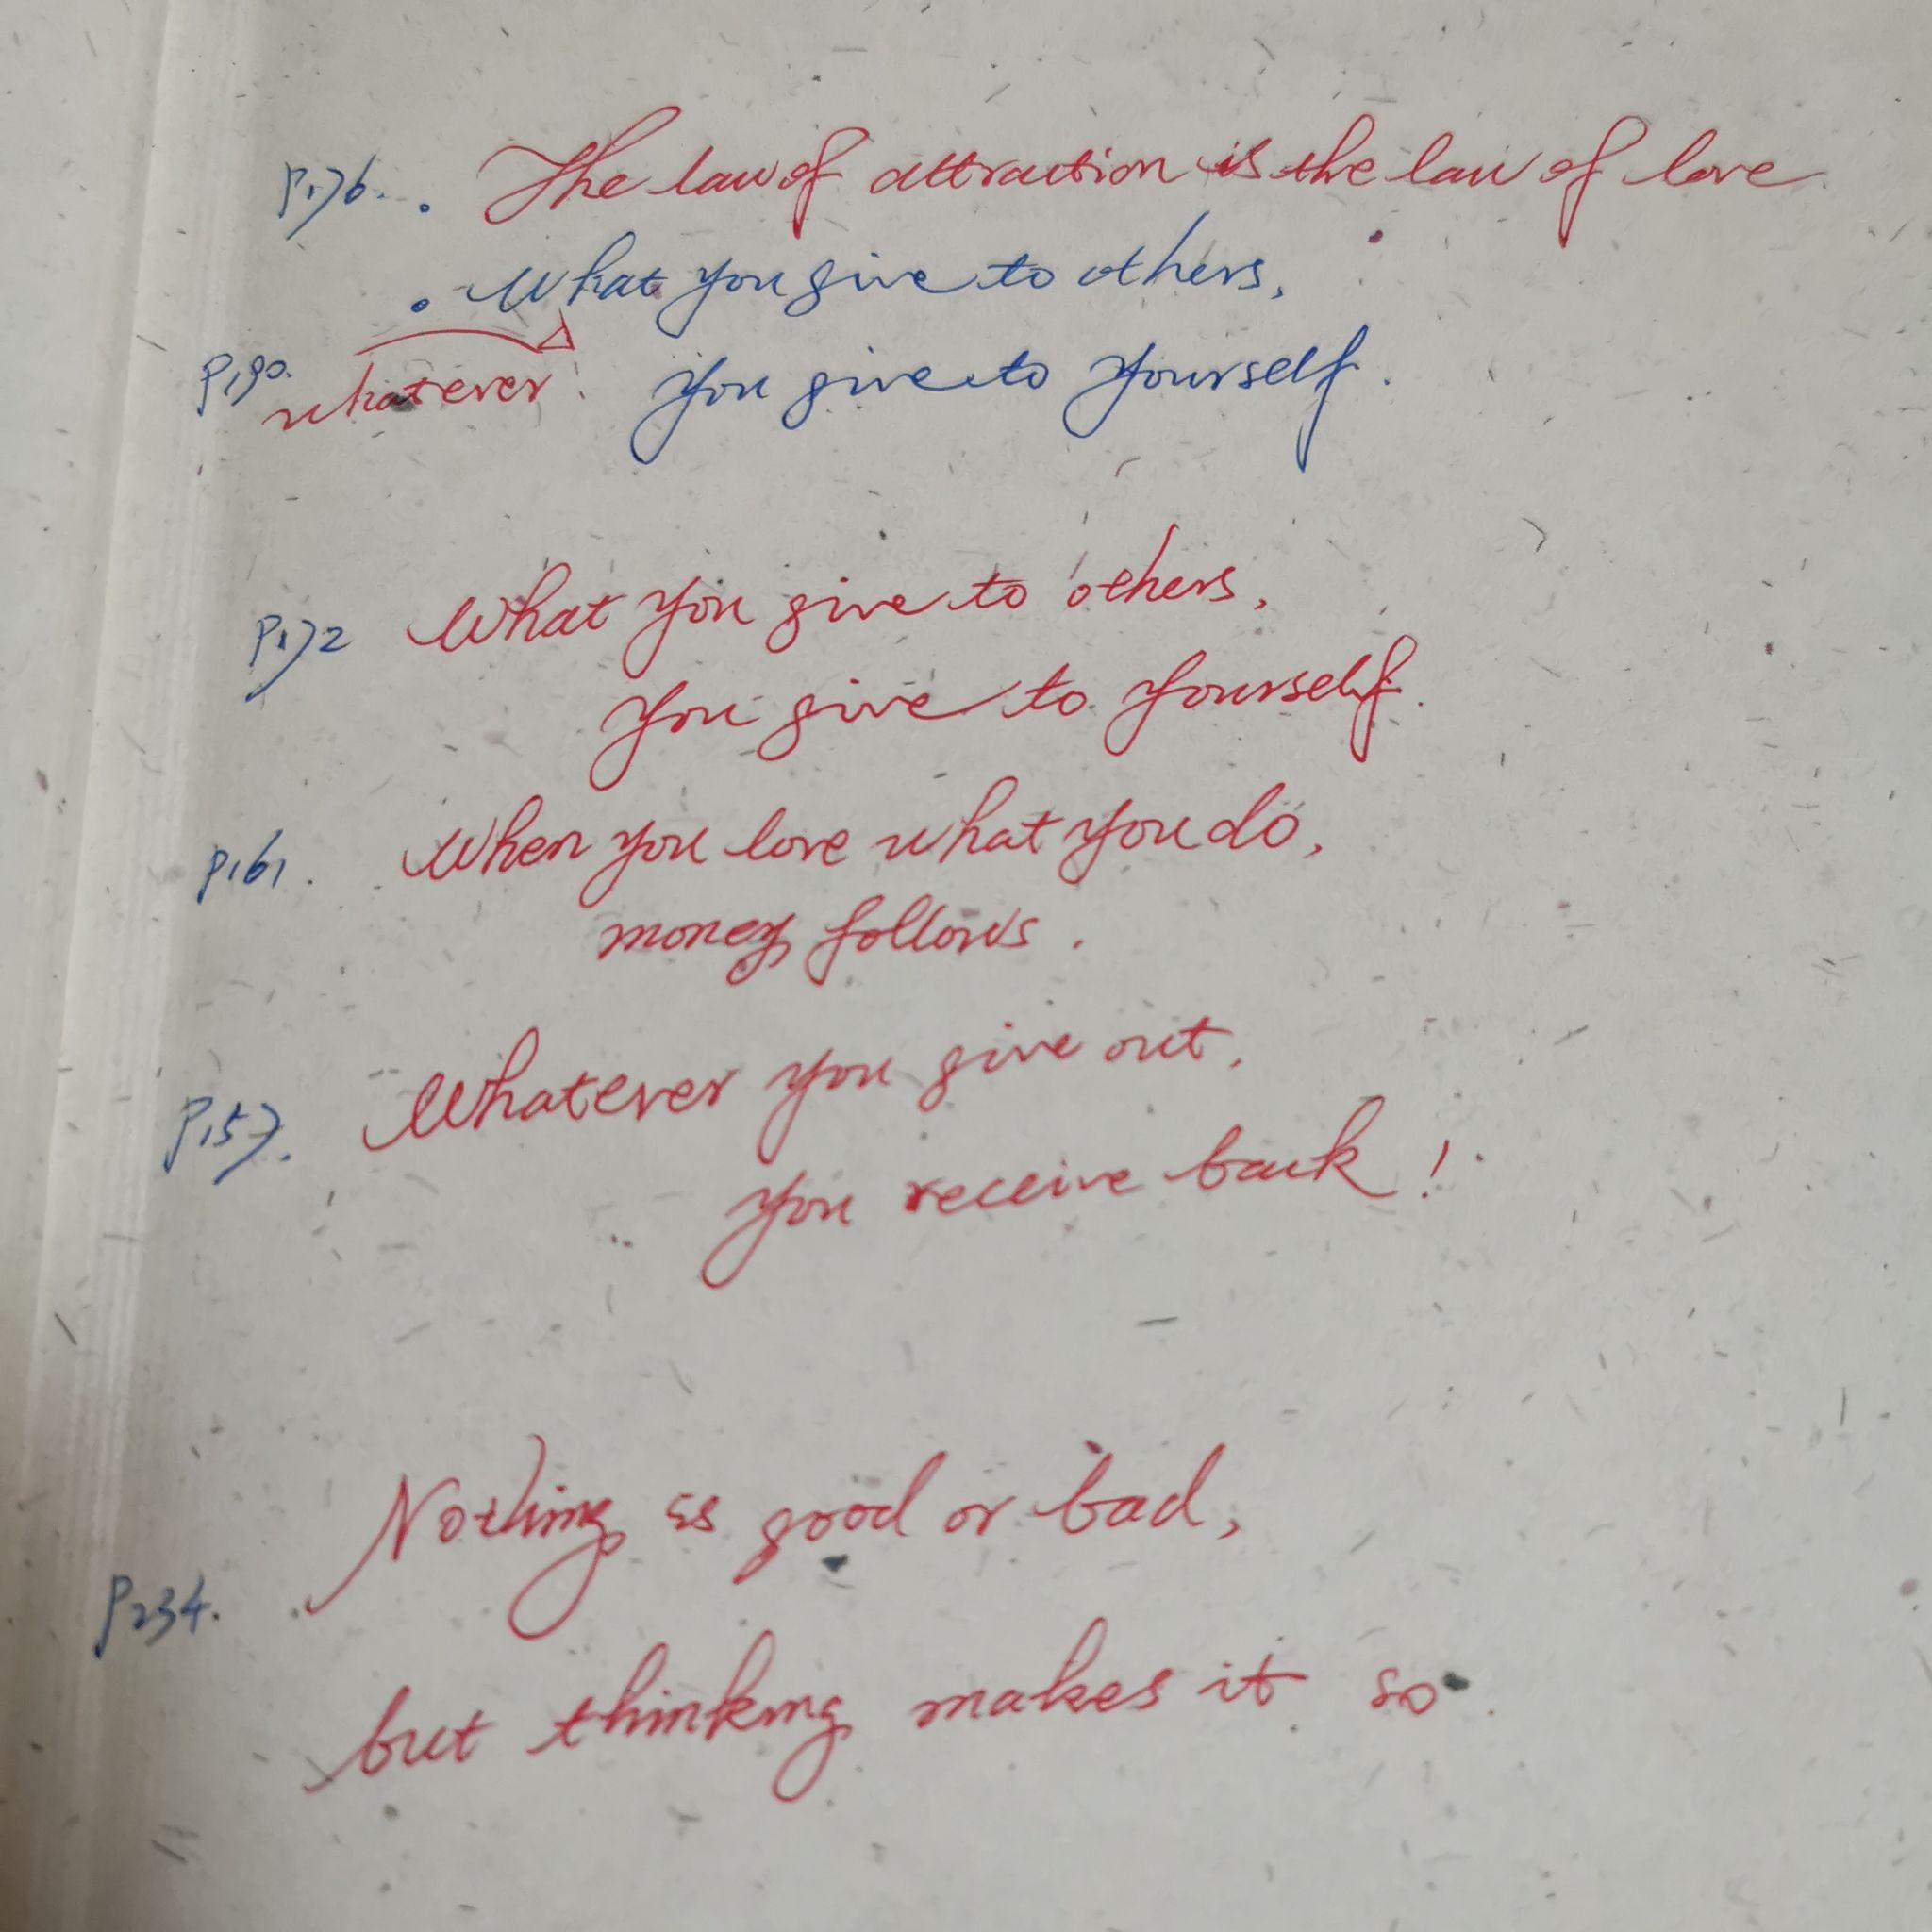 P.176. . The law of attraction is the law of love.
. What you give to others,
P.190. whatever. You give to yourself.
P.172 What you give to others,
you give to yourself.
P.161. When you love what you do,
money follows.
P.157. Whatever you give out,
you receive back!
Nothing is good or bad,
P.234.
but thinking makes it so.